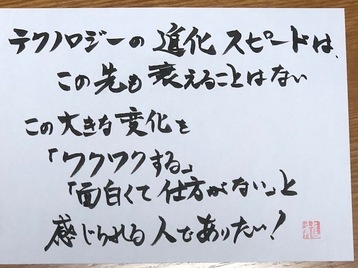 テクノロジーの進化スピードは、
この先も衰えることはない
この大きな変化を
「ワクワクする」
「面白くて仕方がない」と
感じられる人でありたい!